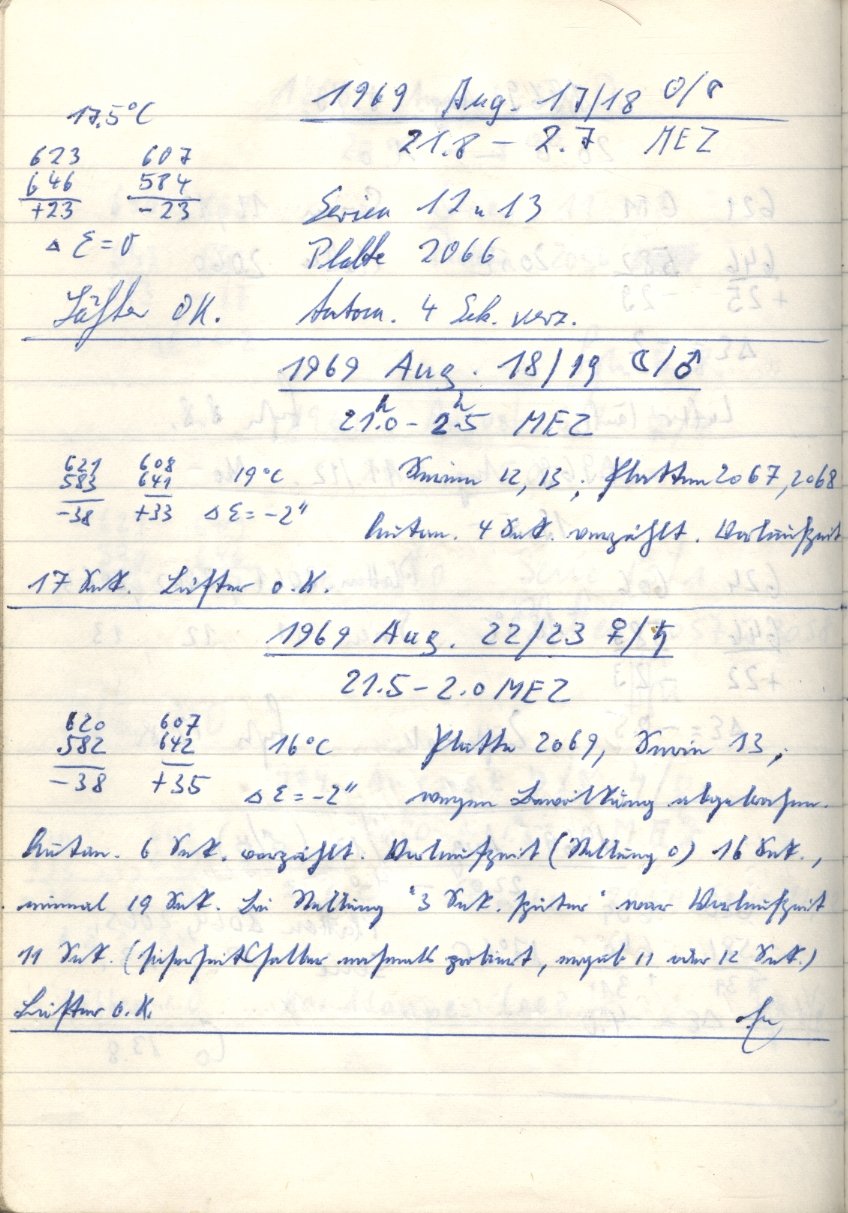 17,5°C
1969 Aug. 17/18 ☉/☾
21.8 – 2.7 MEZ
623 607
646 584
+23 -23
Δ Ɛ = 0
Serien 12 u 13
Platte 2066
Lüfter OK. Autom. 4 Sek. verz.
1969 Aug. 18/19 ☾/♂
21.0ʰ – 2.5ʰ MEZ
621 608
583 641
-38 +33
19°C
Δ Ɛ = -2"
Serien 12, 13; Platten 2067, 2068
Autom. 4 Sek. verzählt. Vorlaufzeit
17 Sek. Lüfter o.K.
1969 Aug. 22/23 ♀/♄
21.5 – 2.0 MEZ
620 607
582 642
-38 +35
16°C
Δ Ɛ = -2"
Platte 2069, Serie 13,
wegen Bewölkung abgebrochen.
Autom. 6 Sek. verzählt. Vorlaufzeit (Stellung 0) 16 Sek.,
einmal 19 Sek. Bei Stellung "3 Sek. später" war Vorlaufzeit
11 Sek. (sicherheitshalber nochmals probiert, ergab 11 oder 12 Sek.)
Lüfter o.K.